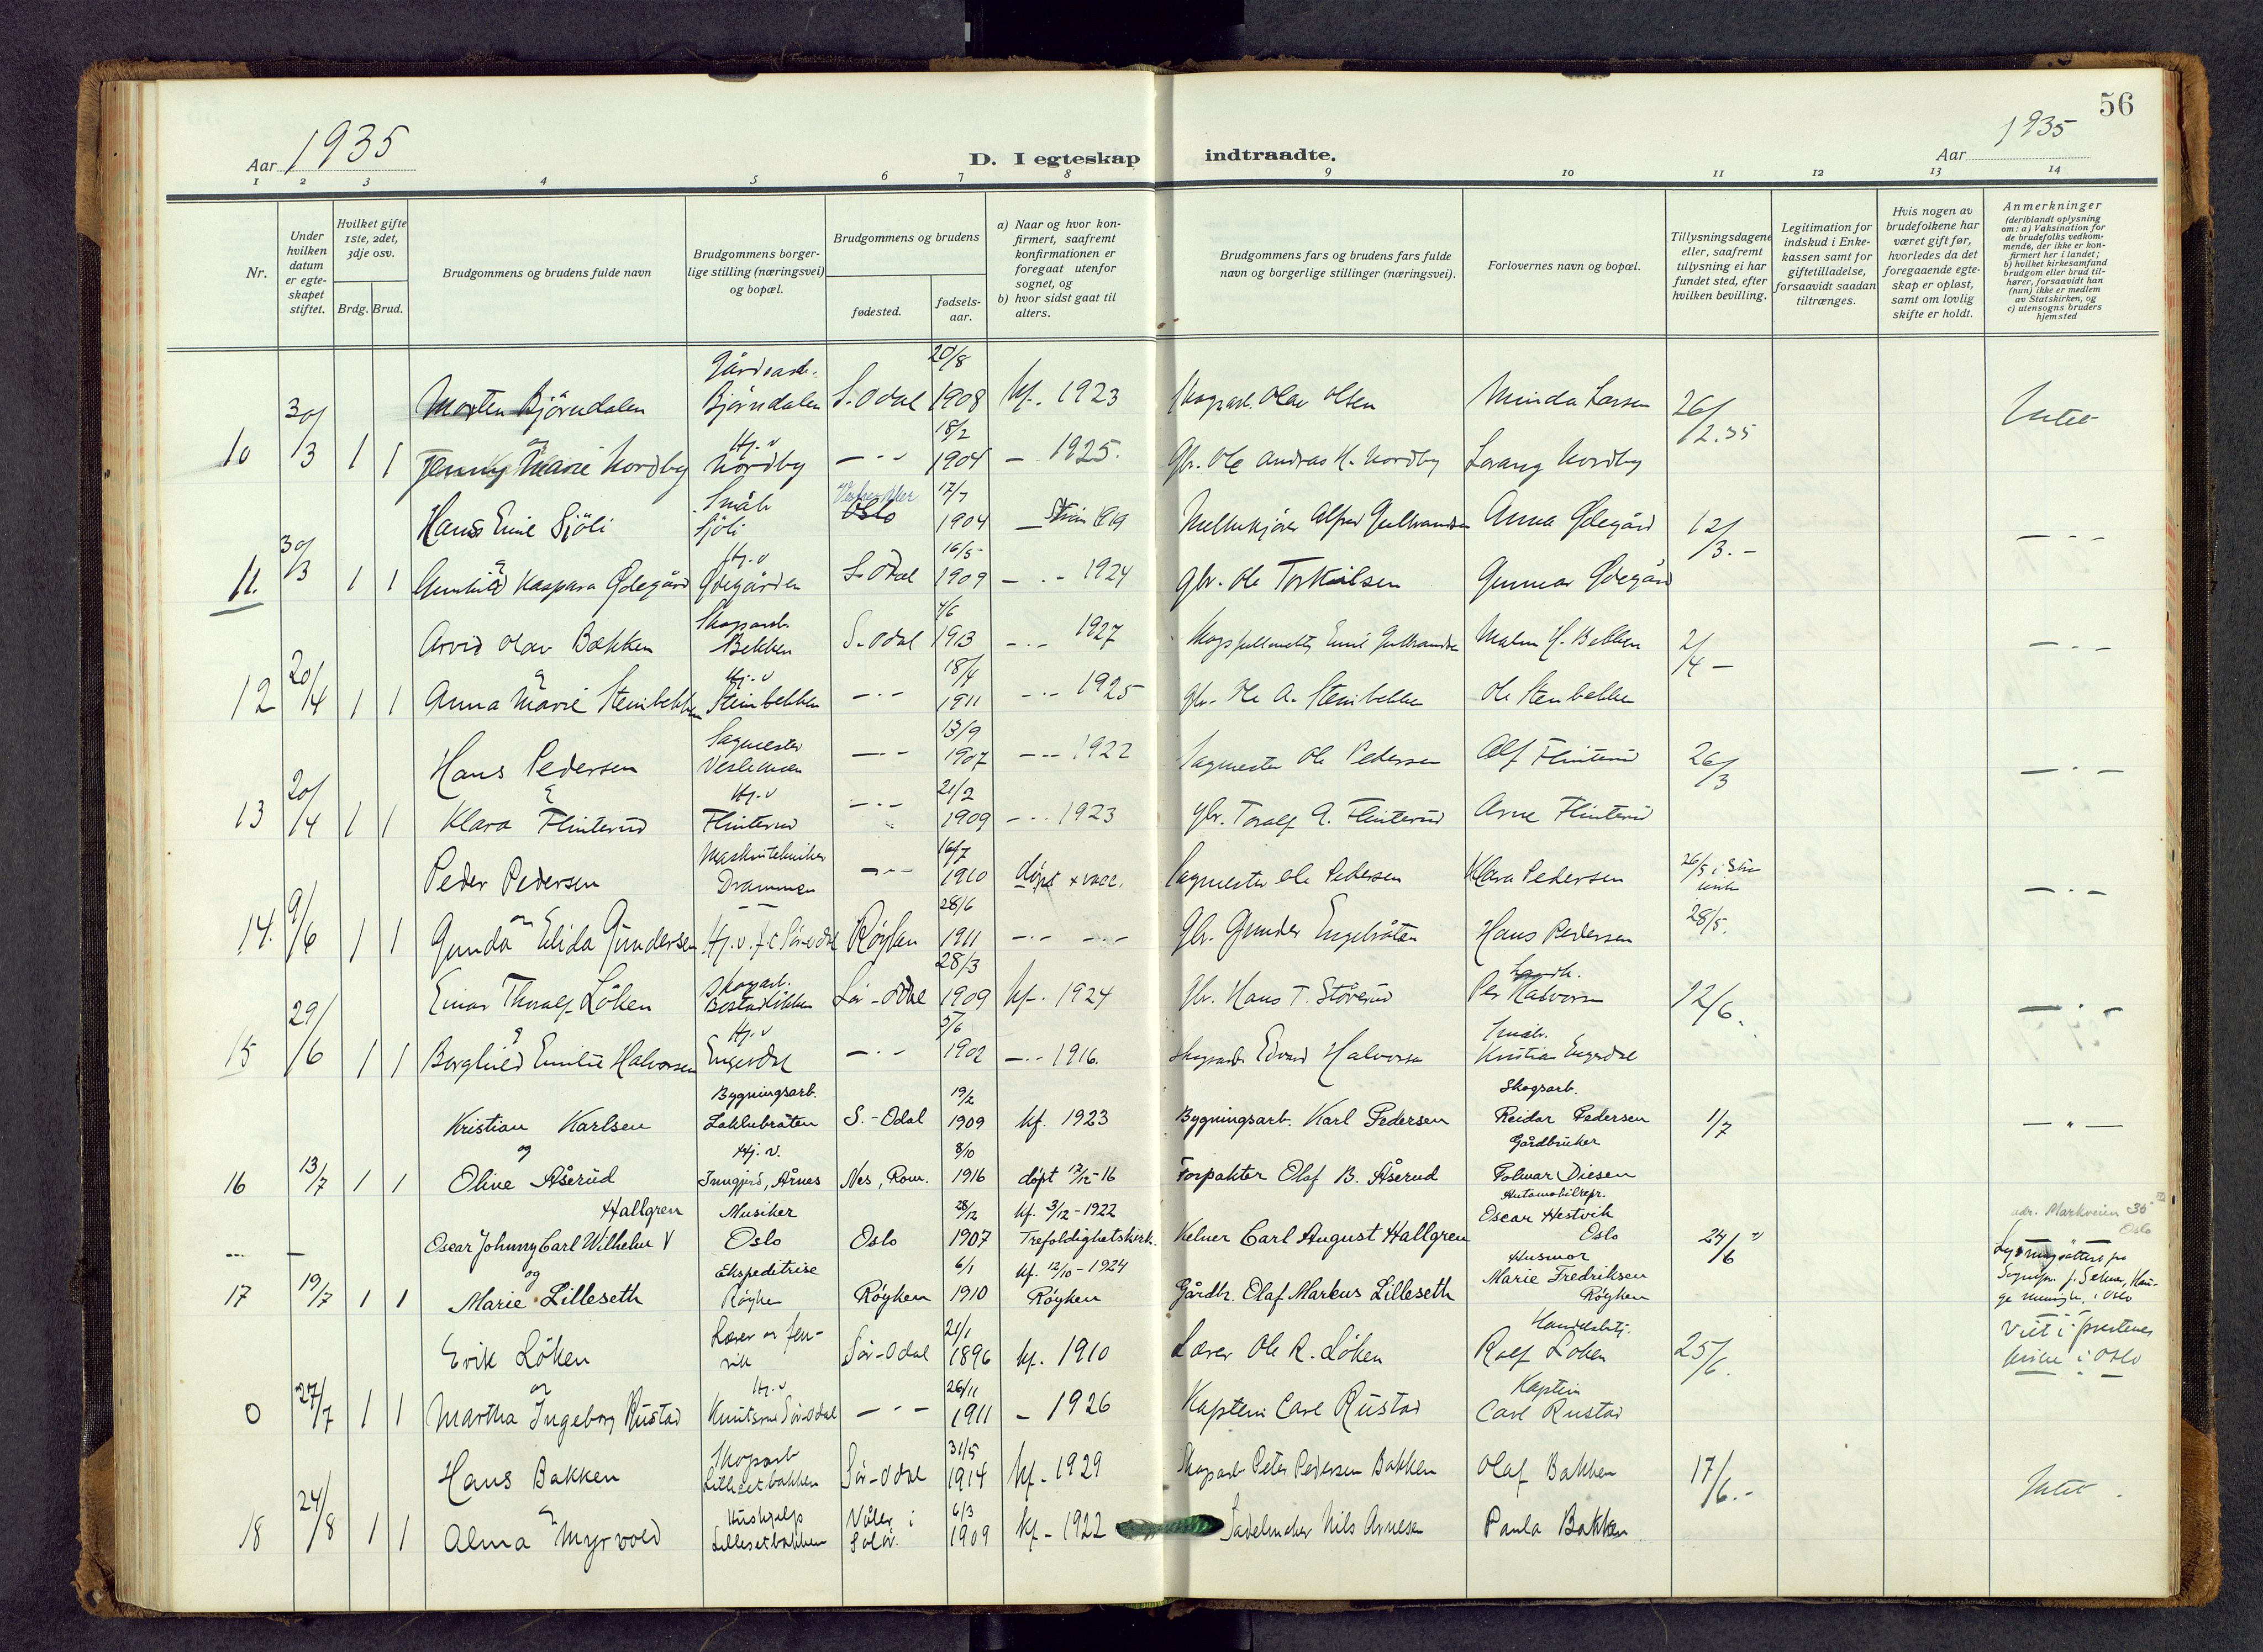 56
1935
1935
Aar
D. I egteskap
indtraadte.
Aar
1 2 3 4 5 6 7 8 9 10 11 12 13 14
Nr.
Under hvilken datum er egte-skapet stiftet.
Hvilket gifte 1ste, 2det, 3dje osv.
Brdg. Brud.
Brudgommens og brudens fulde navn
Brudgommens borger-lige stilling (næringsvei) og bopæl.
Brudgommens og brudens
fødested.
fødsels-aar.
a) Naar og hvor kon-firmert, saafremt konfirmationen er foregaat utenfor sognet, og
b) hvor sidst gaat til alters.
Brudgommens fars og brudens fars fulde navn og borgerlige stillinger (næringsvei).
Forlovernes navn og bopæl.
Tillysningsdagene eller, saafremt tillysning ei har fundet sted, efter hvilken bevilling.
Legitimation for indskud i Enke-kassen samt for giftetilladelse, forsaavidt saadan tiltrænges.
Hvis nogen av brudefolkene har været gift før, hvorledes da det foregaaende egte-skap er opløst, samt om lovlig skifte er holdt.
Anmerkninger
(deriblandt oplysning om: a) Vaksination for de brudefolks vedkom-mende, der ikke er kon-firmert her i landet;
b) hvilket kirkesamfund brudgom eller brud til-hører, forsaavidt han (hun) ikke er medlem av Statskirken, og
c) utensogns bruders hjemsted
20/8
Morten Bjørndalen Bjørndalen S. Odal 1908 kf. 1923 Skogsarb. Olav Olsen Minda Larsen 26/2.35 Intet
30/3
og Hj. v 18/2
10 1 1 Jenny Marie Nordby Nordby — · — 1904 — 1925. Gbr. Ole Andras H. Nordby Lorang Nordby
Småbr. 17/7
Hans Emil Sjöli Sjöli Oslo 1904 1919 Alfred Gulbrandsen Anna Ødegård 12/3. —
30/3 Hj. v 16/5
11. 1 1 Gunhild Kaspara Ødegård Ødegården S. Odal 1909 — · — 1924 Gbr. Ole Torkilsen Gunnar Ødegård
Skogsarb. 4/6
Arvid Olav Bakken Bekken S. Odal 1913 — · — 1927 Emil Gulbrandsen Malm H. Bekken 2/4 —
20/4 Hj. v 18/4
12 1 1 Anna Marie Stenbekken Stenbekken — · — 1911 — · — 1925 Gbr. Ole A. Stenbekken Ole Stenbekken
Sagmester 13/9
Hans Pedersen — · — 1907 — · — 1922 Sagmester Ole Pedersen Alf Flinterud 26/3
20/4 & Hj. v 21/2
13 1 1 Klara Flinterud Flinterud — · — 1909 — · — 1923 Gbr. Toralf A. Flinterud Arne Flinterud
Maskintekniker 16/7
Peder Pedersen Drammen — · — 1910 døpt + vacc. Sagmester Ole Pedersen Klara Pedersen 26/5
9/6 og 28/6
14. 1 1 Gunda Elida Gundersen Hj. v. Sør-Odal Røyken 1911 — · — Gbr. Gunder Engebråten Hans Pedersen 28/5.
Skogsarb. 28/3
Einar Thoralf Löken Sør-Odal 1909 kf. 1924 Gbr. Hans T. Støverud Per Halvorsen 12/6.
29/6 Hj. v 5/6 Småbr.
15 1 1 Borghild Emilie Halvorsen Engerdal — · — 1902 — · — 1916. Skogsarb. Edvard Halvorsen Kristian Engerdal
Bygningsarb. 19/2 Skogsarb.
Kristian Karlsen Loklubråten S.-Odal 1909 kf. 1923 Bygningsarb. Karl Pedersen Reidar Pedersen 1/7 — " —
og Hj. v. 8/10 Gårdbruker
16 13/7 1 1 Oline Åserud Inngjerd, Årnes Nes, Rom. 1916 døpt 17/12-16 Forpakter Olaf B. Åserud Folmar Diesen
Hallgren Musiker 28/12 kf. 3/12-1922 Automobilrepr. Oscar Hestvik adr. Markveien 35 Oslo
Oscar Johnny Carl Wilhelm V Oslo Oslo 1907 Trefoldighetskirk. Kelner Carl August Hallgren Oslo 24/6
og Ekspeditrise 6/1 kf. 12/10-1924 Husmor
17 19/7 1 1 Marie Lilleseth Røyken Røyken 1910 Røyken Gårdbr. Olaf Markus Lilleseth Marie Fredriksen Røyken
Lærer og fen-rik 21/1
Erik Löken Sør-Odal 1896 kf. 1910 Lærer Ole R. Löken Rolf Löken 25/6. Viet i prestenes kirke i Oslo
og Hj. v 26/11 Kaptein
0 27/7 1 1 Martha Ingeborg Rustad Knutsrud Sør-Odal — · — 1911 — 1926 Kaptein Carl Rustad Carl Rustad
Skogsarb 31/5
Hans Bakken Lillesetbakken Sør-Odal 1914 kf. 1929 Skogsarb. Peter Pedersen Bakken Olaf Bakken 17/6. — Intet
24/8 Hushjelp 6/3
18 1 1 Alma Myrvold Lillesetbakken Våler i Solør. 1909 kf — 1922 Sadelmaker Nils Arnesen Paula Bakken